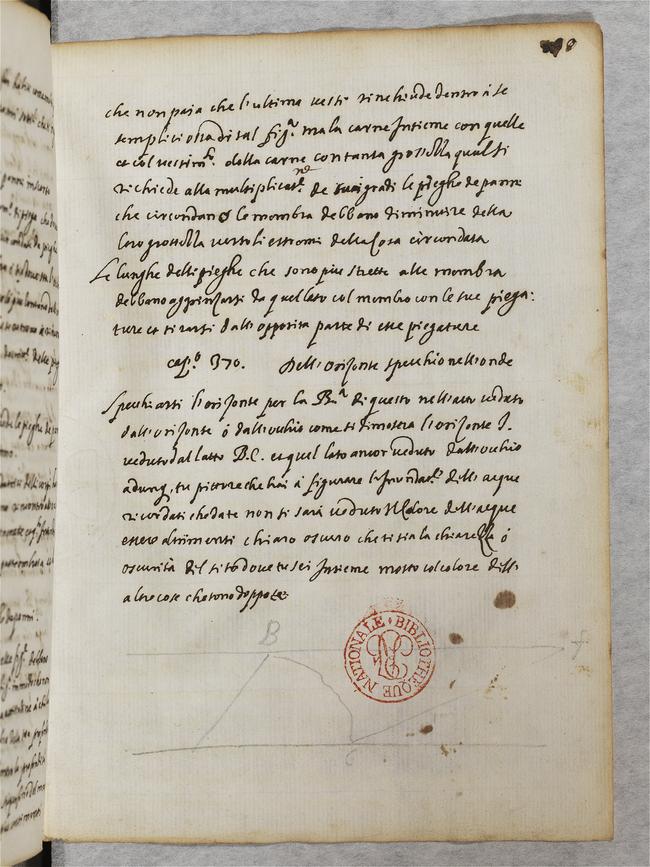 che non paia che l'ultima vesti rinchiude dentro i se
semplici ossa di tal fig.ª ma la carne insieme con quelle
et col vestim.to della carne con tanta grossezza qual si
richiede alla multiplicat.ne de suoi gradi le pieghe de panni
che circondano le membra debbano diminuire della
loro grossezza verso li estremi della cosa circondata
Le lunghe delle pieghe che sono piu strette alle membra
debbano aggrinzarsi da quel lato col membro con le sue piega:
ture et tirarsi dall'opposita parte di esse piegature
cap.º 370. Dell'orizonte specchio nell'onde
Specchiarsi l'orizonte per la di questo nell' veduto
dall'orizonte ó dall'occhio come si dimostra l'orizonte f.
veduto dal latto B.C. et quel lato ancor veduto dall'occhio
adunq, tu pittore che hai á figurare le inundat.ni dell'acque
ricordati che da te non si sará veduto il colore dell'acque
essere altrimenti chiaro o scuro che si sia la chiarezza ó
oscuritá del sito dove tu sei insieme misto col colore dell'
altre cose che sono doppo te
B
f
C
BIBLIOTHEQUE NATIONALE